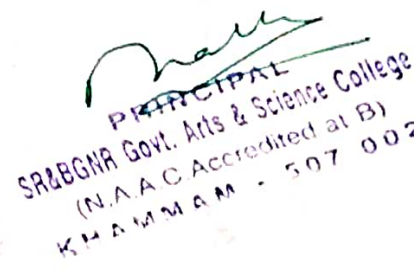 PRINCIPAL
SR&BGNR Govt. Arts & Science College
(N.A.A.C.Accredited at B)
KHAMMAM - 507 002